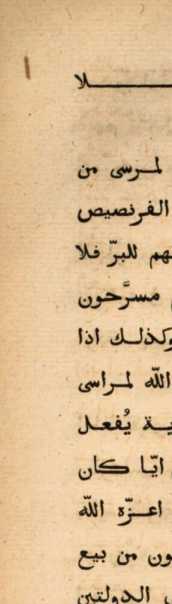 لا
لمرسى من
الفرنصيص
هم للبرّ فلا
مسرَّحون
وكذلك اذا
الله لمراسى
ية يُفعل
ايّا كان
اعزّه الله
ون من بيع
الدولتين